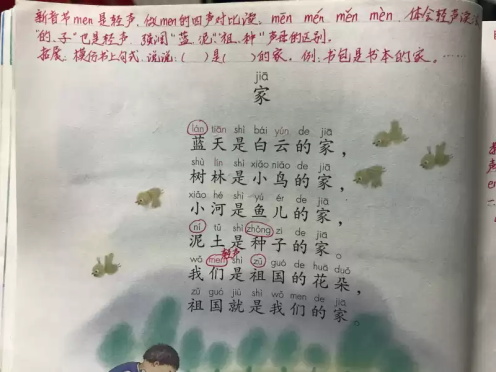 新音节men是轻声,做men的四声对比读,mēn mén měn mèn,体会轻声读;
"的、子"也是轻声,强调"蓝、泥""祖、种"声母的区别。
拓展、模仿书上句式,说说:( )是( )的家。例:书包是书本的家。……
jiā
家
lán tiān shì bái yún de jiā
蓝天是白云的家,
shù lín shì xiǎo niǎo de jiā
树林是小鸟的家,
xiǎo hé shì yú ér de jiā
小河是鱼儿的家,
ní tǔ shì zhǒng zi de jiā
泥土是种子的家。
轻声
wǒ men shì zǔ guó de huā duǒ
我们是祖国的花朵,
zǔ guó jiù shì wǒ men de jiā
祖国就是我们的家。